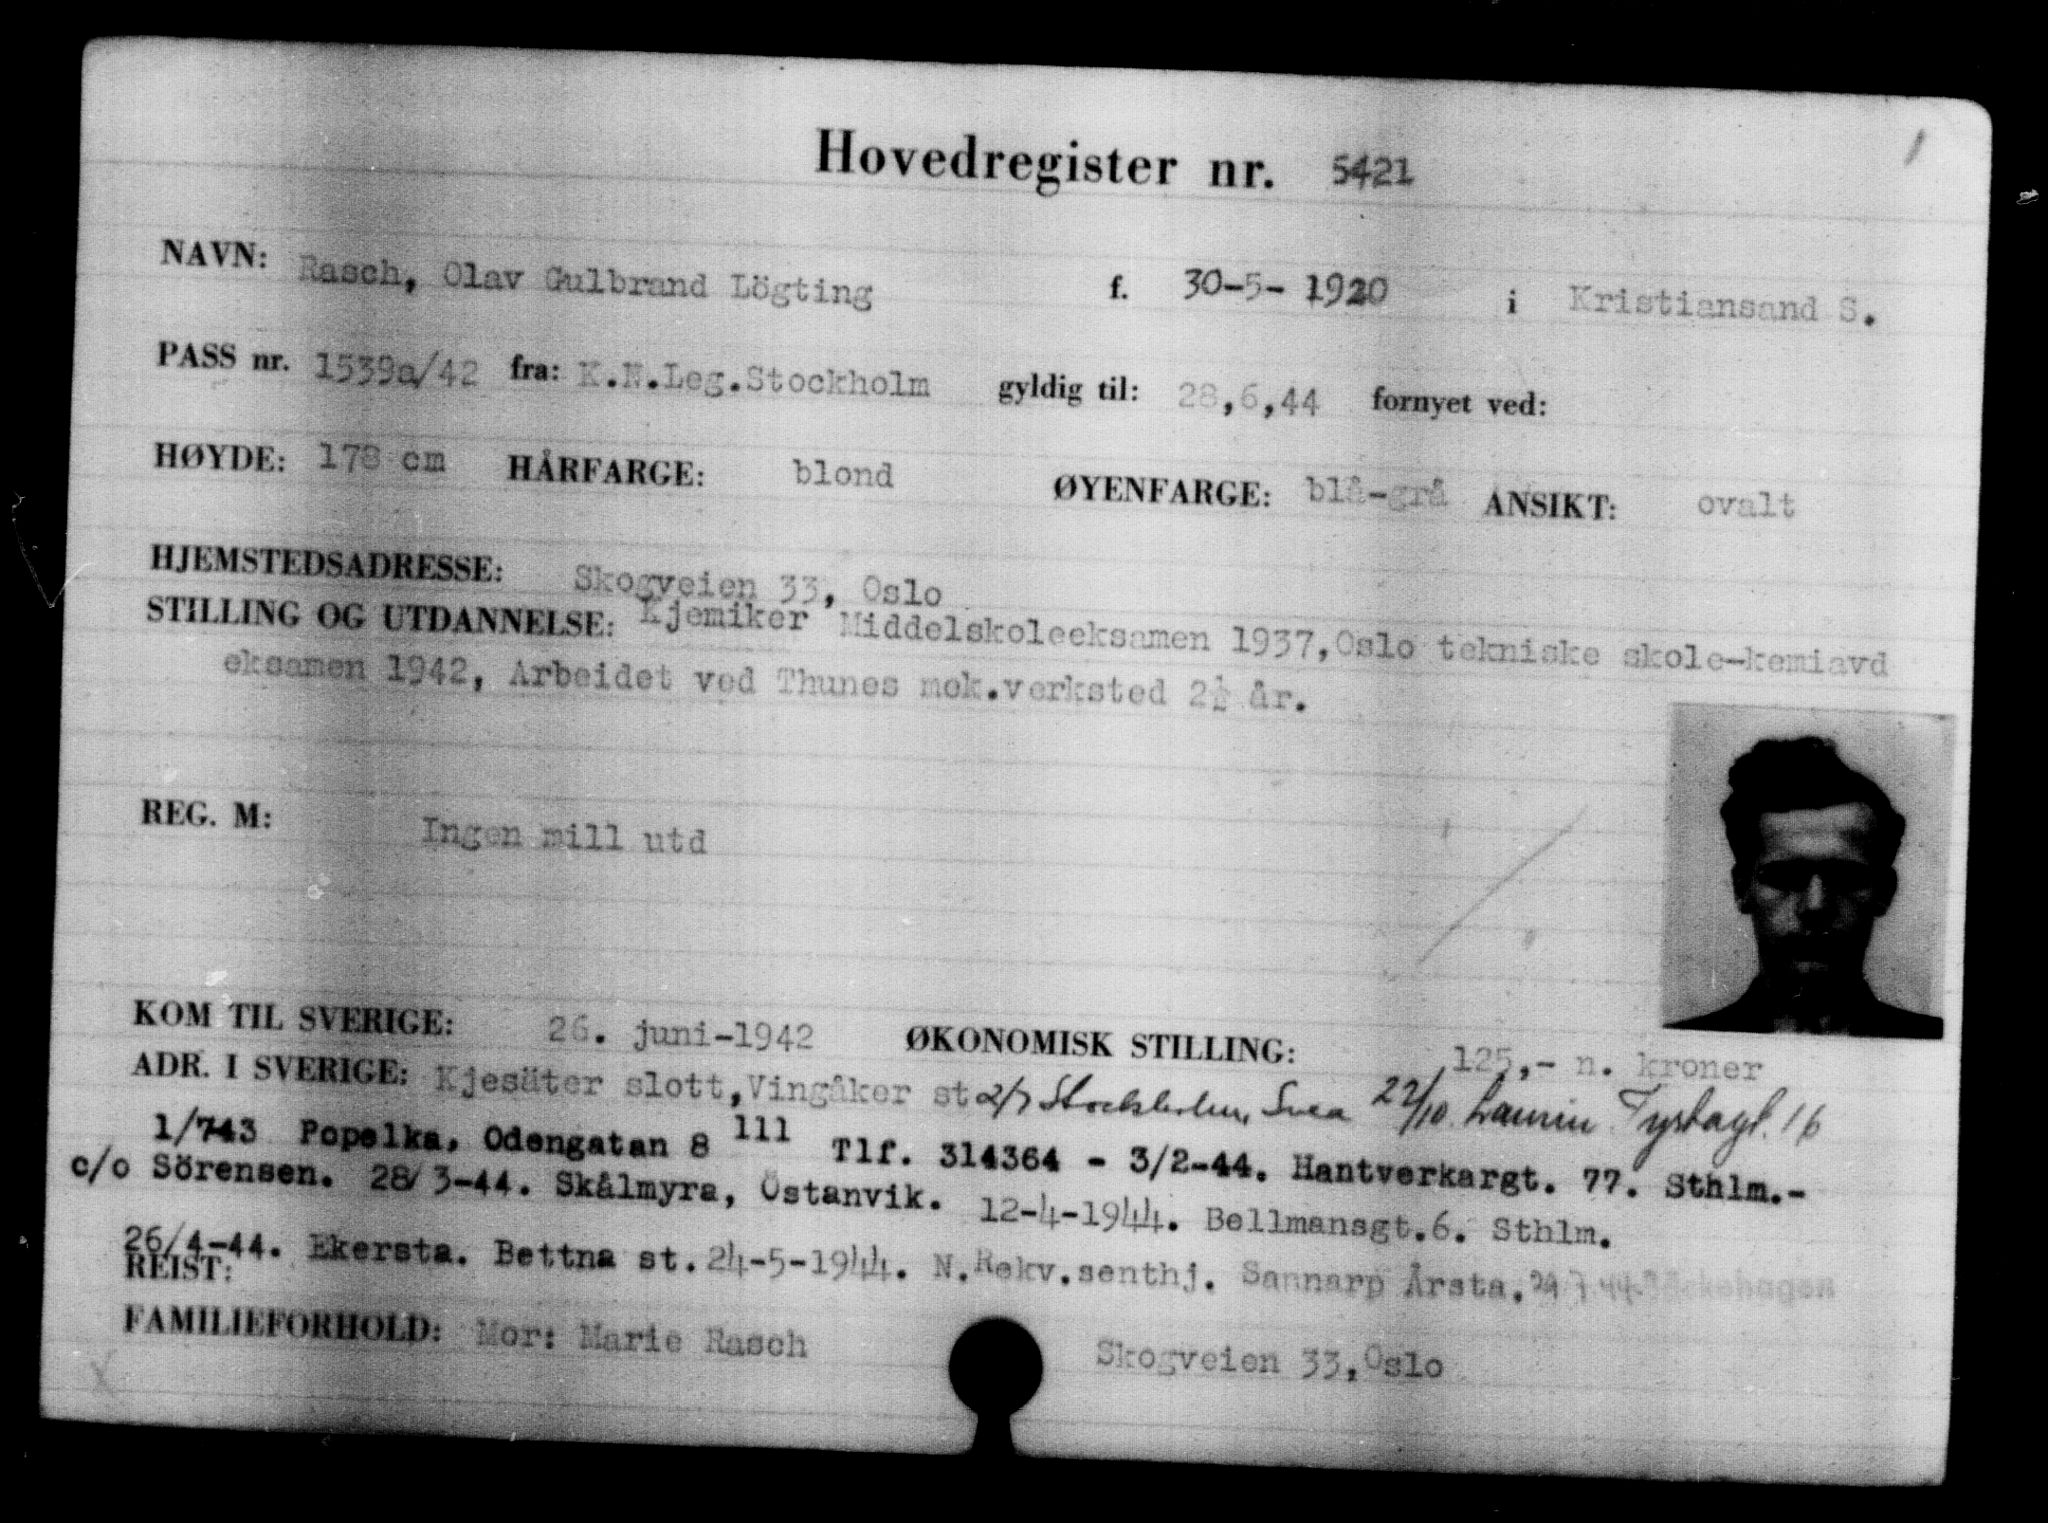 1
Hovedregister nr. 5421
NAVN: Rasch, Olav Gulbrand Lögting f. 30-5-1920 i Kristiansand S.
PASS nr. 1539a/42 fra: K.N.Leg.Stockholm gyldig til: 28,6,44 fornyet ved:
HØYDE: 178 cm HÅRFARGE: blond ØYENFARGE: blå-grå ANSIKT: ovalt
HJEMSTEDSADRESSE: Skogveien 33, Oslo
STILLING OG UTDANNELSE: Kjemiker Middelskoleeksamen 1937, Oslo tekniske skole-kemiavd
eksamen 1942, Arbeidet ved Thunes mek.verksted 2½ år.
REG. M: Ingen mill utd
KOM TIL SVERIGE: 26. juni-1942 ØKONOMISK STILLING: 125,- n. kroner
ADR. I SVERIGE: Kjesäter slott, Vingåker st 2/7 Stockholm, Svea 22/10 Laurin Tystagt. 16
1/743 Popelka, Odengatan 8 111 Tlf. 314364 - 3/2-44. Hantverkargt. 77. Sthlm.-
c/o Sörensen. 28/3-44. Skålmyra, Östanvik. 12-4-1944. Bellmansgt.6. Sthlm.
26/4-44. Ekersta. Bettna st. 24-5-1944. N.Rekv.senthj. Sannarp Årsta.
REIST:
FAMILIEFORHOLD: Mor: Marie Rasch Skogveien 33, Oslo
X